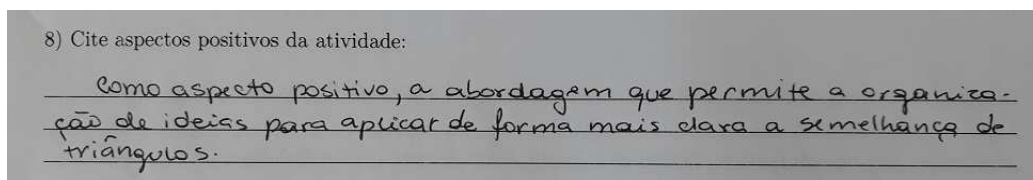 8) Cite aspectos positivos da atividade:
Como aspecto positivo, a abordagem que permite a organiza-
ção de ideias para aplicar de forma mais clara a semelhança de
triângulos.